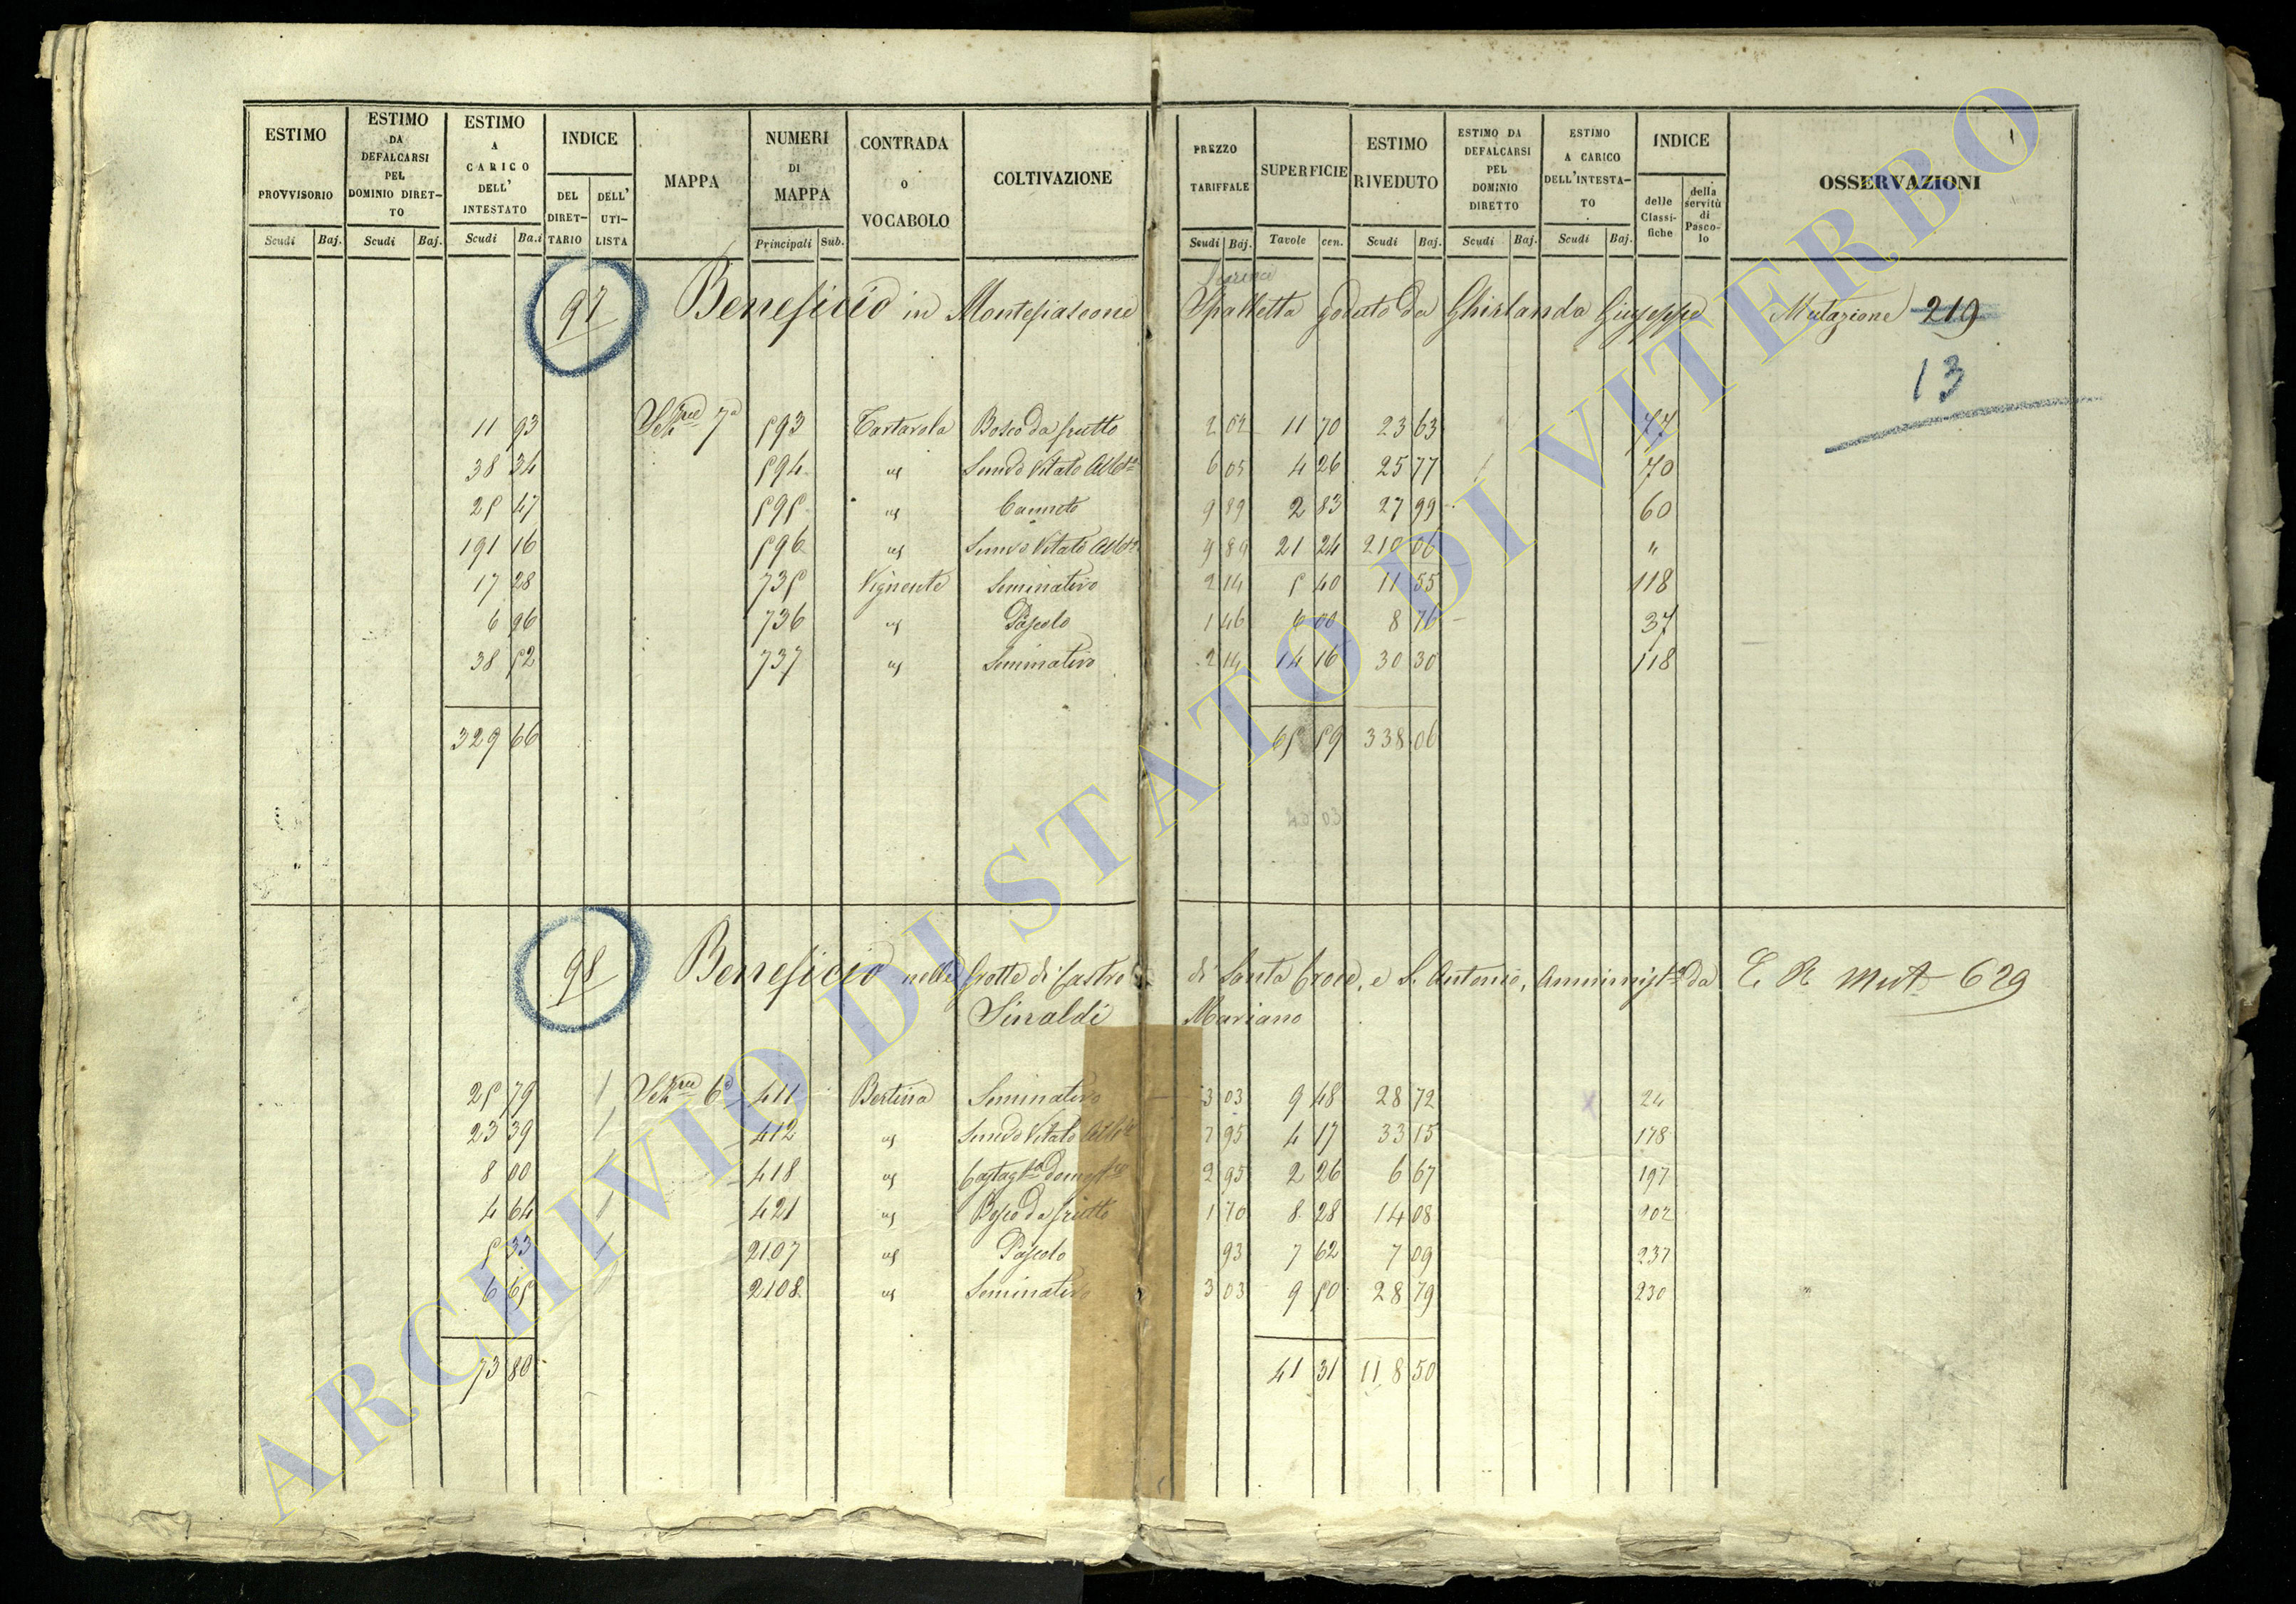 ESTIMO PROVVISORIO Scudi Baj.
ESTIMO DA DEFALCARSI PEL DOMINIO DIRETTO Scudi Baj.
ESTIMO A CARICO DELL' INTESTATO Scudi Ba.i
INDICE DEL DIRETTARIO DELL' UTILISTA
MAPPA
NUMERI DI MAPPA Principali Sub.
CONTRADA O VOCABOLO
COLTIVAZIONE
PREZZO TARIFFALE Scudi Baj.
SUPERFICIE Tavole cen.
ESTIMO RIVEDUTO Scudi Baj.
ESTIMO DA DEFALCARSI PEL DOMINIO DIRETTO Scudi Baj.
ESTIMO A CARICO DELL'INTESTATO Scudi Baj.
INDICE delle Classifiche della servitù di Pascolo
OSSERVAZIONI
97 Beneficio in Montefiascone Spalletta goduto da Ghirlanda Giuseppe Mutazione 219
13
11 93 Sez 7a 593 Tartarola Bosco da frutto 2 02 11 70 23 63 77
38 34 594 " Semvo Vitato 6 05 4 26 25 77 70
25 47 595 " Canneto 9 89 2 83 27 99 60
191 16 596 " Semvo Vitato 9 89 21 24 210 06 "
17 28 735 Seminativo 2 14 5 40 11 55 118
6 96 736 " Pascolo 1 46 6 00 8 76 37
38 52 737 " Seminativo 2 14 14 16 30 30 118
329 66 65 59 338 06
98 Beneficio nelle Grotte di Castro di Santa Croce, e S. Antonio, da E R Mut 629
Sinaldi Mariano
25 79 6a 411 Bertina Seminativo 3 03 9 48 28 72 24
23 39 412 " Semvo Vitato 7 95 4 17 33 15 178
8 00 418 " 2 95 2 26 6 67 197
4 64 421 " Bosco da frutto 1 70 8 28 14 08 202
5 33 2107 " Pascolo 93 7 62 7 09 237
6 65 2108 " Seminativo 3 03 9 50 28 79 230
73 80 41 31 118 50
ARCHIVIO DI STATO DI VITERBO